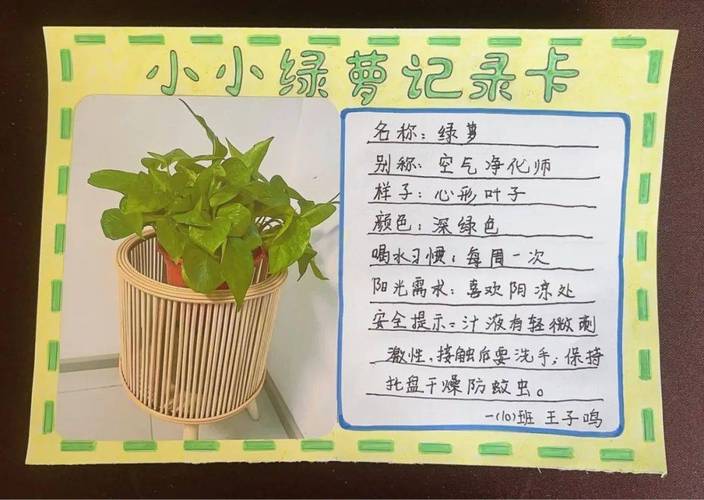 小小绿萝记录卡
名称：绿萝
别称：空气净化师
样子：心形叶子
颜色：深绿色
喝水习惯：每周一次
阳光需求：喜欢阴凉处
安全提示：汁液有轻微刺
激性，接触后要洗手；保持
托盘干燥防蚊虫。
一(10)班 王子鸣